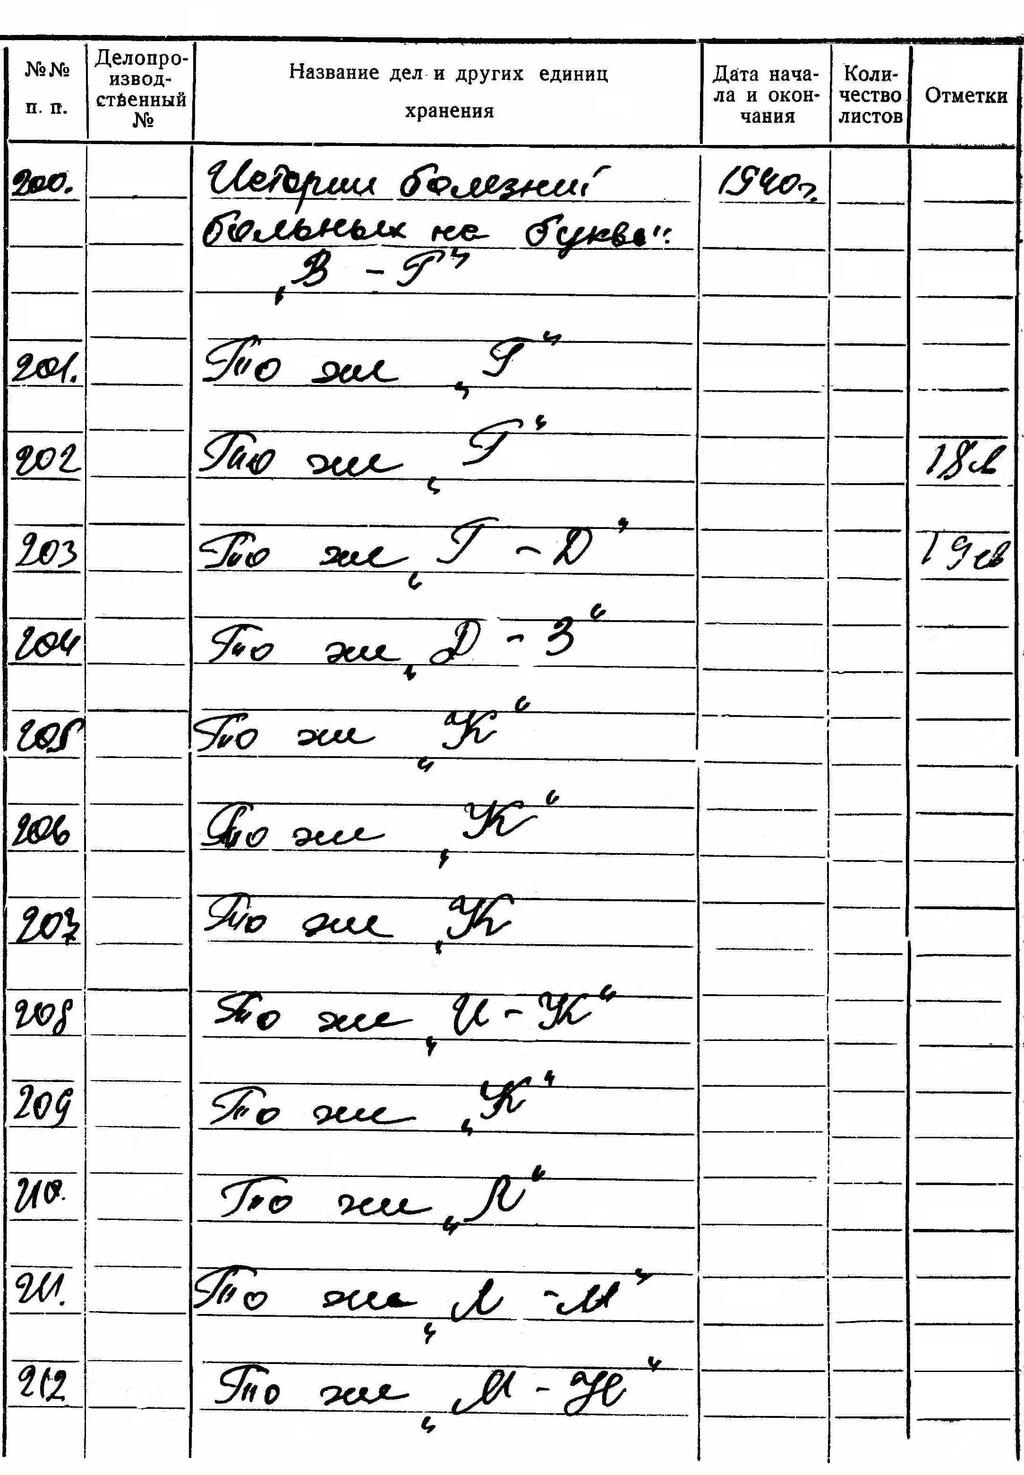 №№ п. п. Делопроизводственный № Название дел и других единиц хранения Дата начала и окончания Количество листов Отметки
200. Истории болезни 1940 г.
больных на буквы:
„В – Г"
201. То же „Г"
202 То же „Г" 18 л
203 То же „Г – Д" 19 лв
204 То же „Д – З"
205 То же „К"
206 То же „К"
207 То же „К
208 То же „И – К"
209 То же „К"
210. То же „Л"
211. То же „Л – М"
212 То же „М – Н"